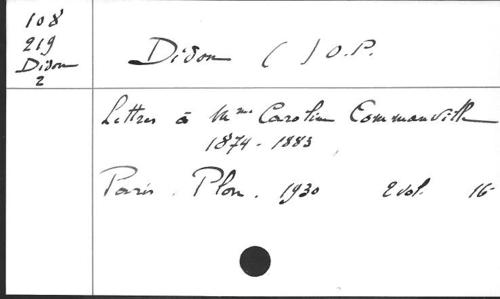 108
219
Didon
2
Didon ( ) O.P.
Lettres à Mme Caroline Commanville
1874-1883
Paris . Plon . 1930 2 vol. 16